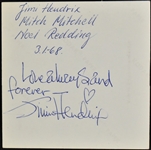 Jimi Hendrix
Mitch Mitchell
Noel Redding
3.1.68.
Love & 
forever
Jimi Hendrix